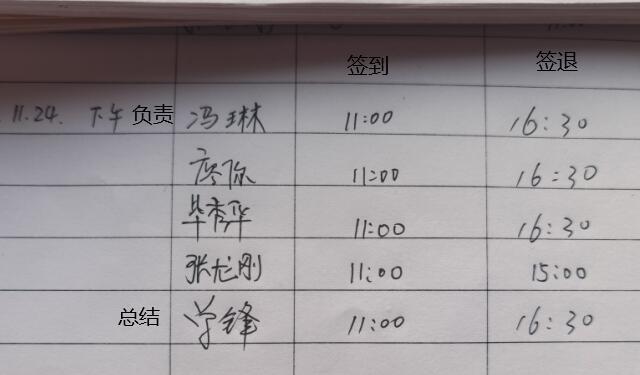 签到 签退
11.24. 下午 负责 冯琳 11:00 16:30
11:00 16:30
毕秀华 11:00 16:30
张龙刚 11:00 15:00
总结 学锋 11:00 16:30